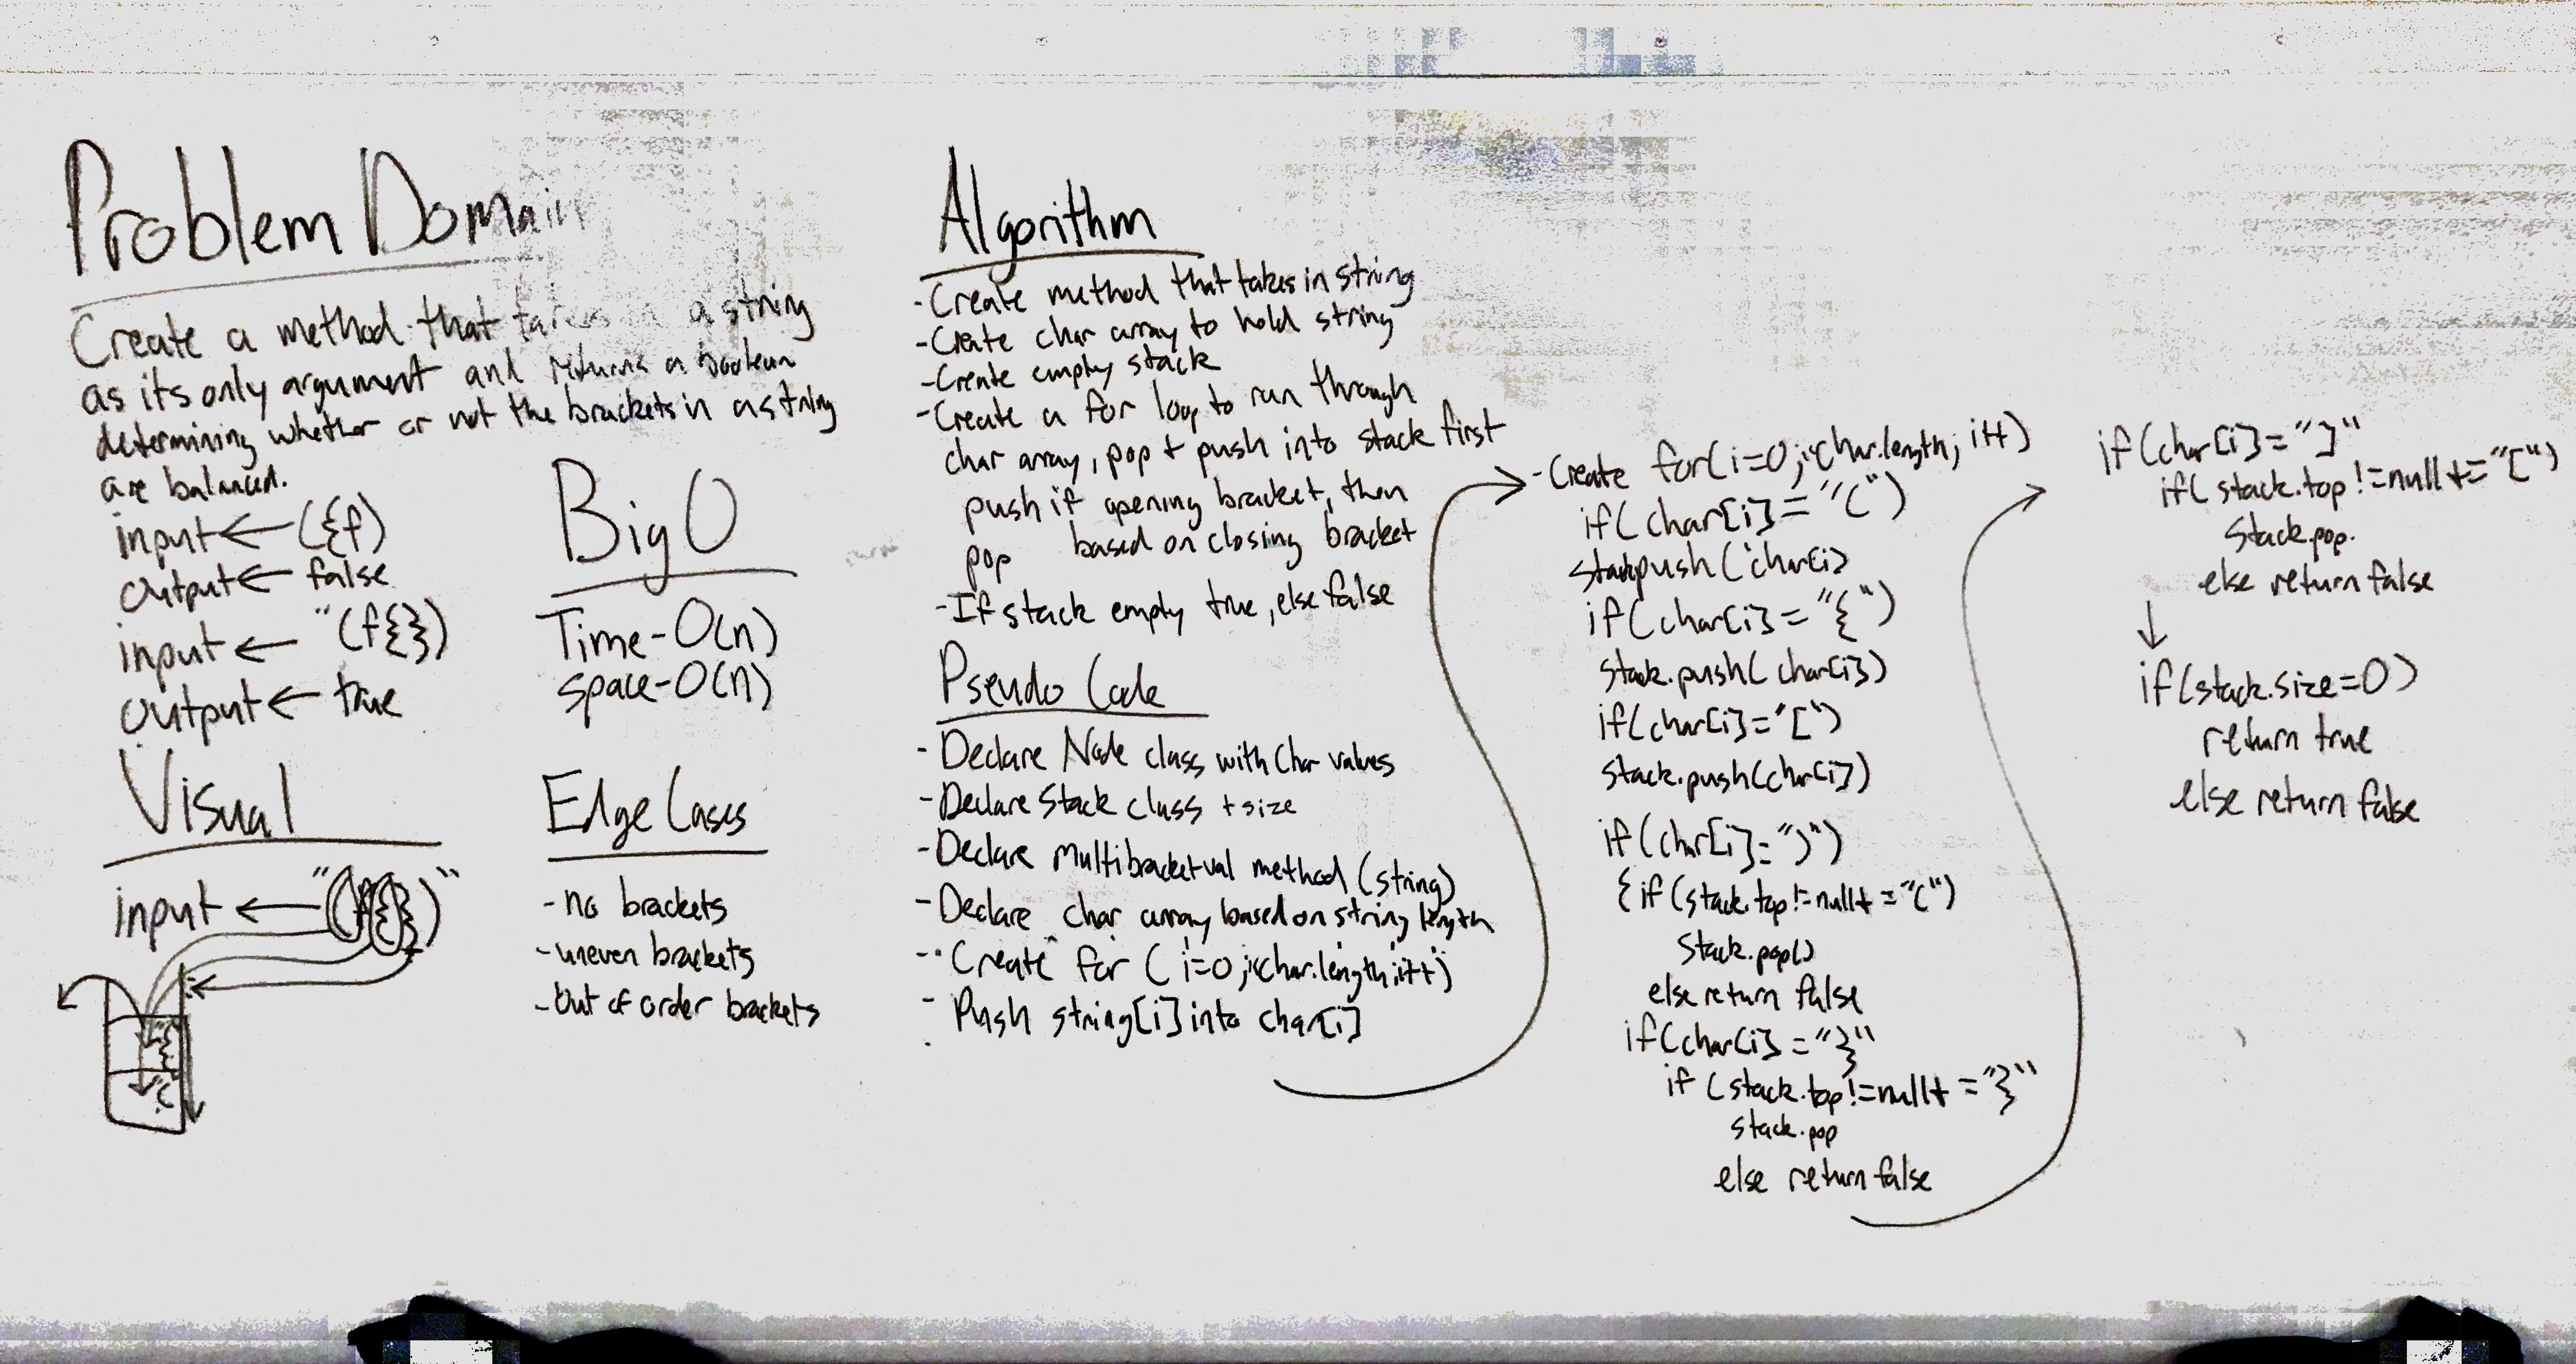 Problem Domain
Create a method that takes in a string
as its only argument and returns a boolean
determining whether or not the brackets in a string
are balanced.
input ← ({f)
output ← false
input ← "(f{})
output ← true
Visual
input ← "(f{})"
{
(
Big O
Time-O(n)
space-O(n)
Edge Cases
-no brackets
-uneven brackets
-Out of order brackets
Algorithm
-Create method that takes in string
-Create char array to hold string
-Create empty stack
-Create a for loop to run through
char array, pop + push into stack first
push if opening bracket, then
pop based on closing bracket
-If stack empty true, else false
Pseudo Code
-Declare Node class with Char values
-Declare Stack class + size
-Declare multibracketval method (string)
-Declare char array based on string length
-Create for (i=0;i<char.length;i++)
-Push string[i] into char[i]
-Create for(i=0;i<char.length; i++)
if(char[i]="(")
stack.push(char[i]
if(char[i]="{")
stack.push(char[i])
if(char[i]="[")
stack.push(char[i])
if(char[i]=")")
{if(stack.top!=null+="(")
stack.pop()
else return false
if(char[i]="}"
if(stack.top!=null+="}"
stack.pop
else return false
if(char[i]="]"
if(stack.top!=null+="[")
Stack.pop.
else return false
if(stack.size=0)
return true
else return false